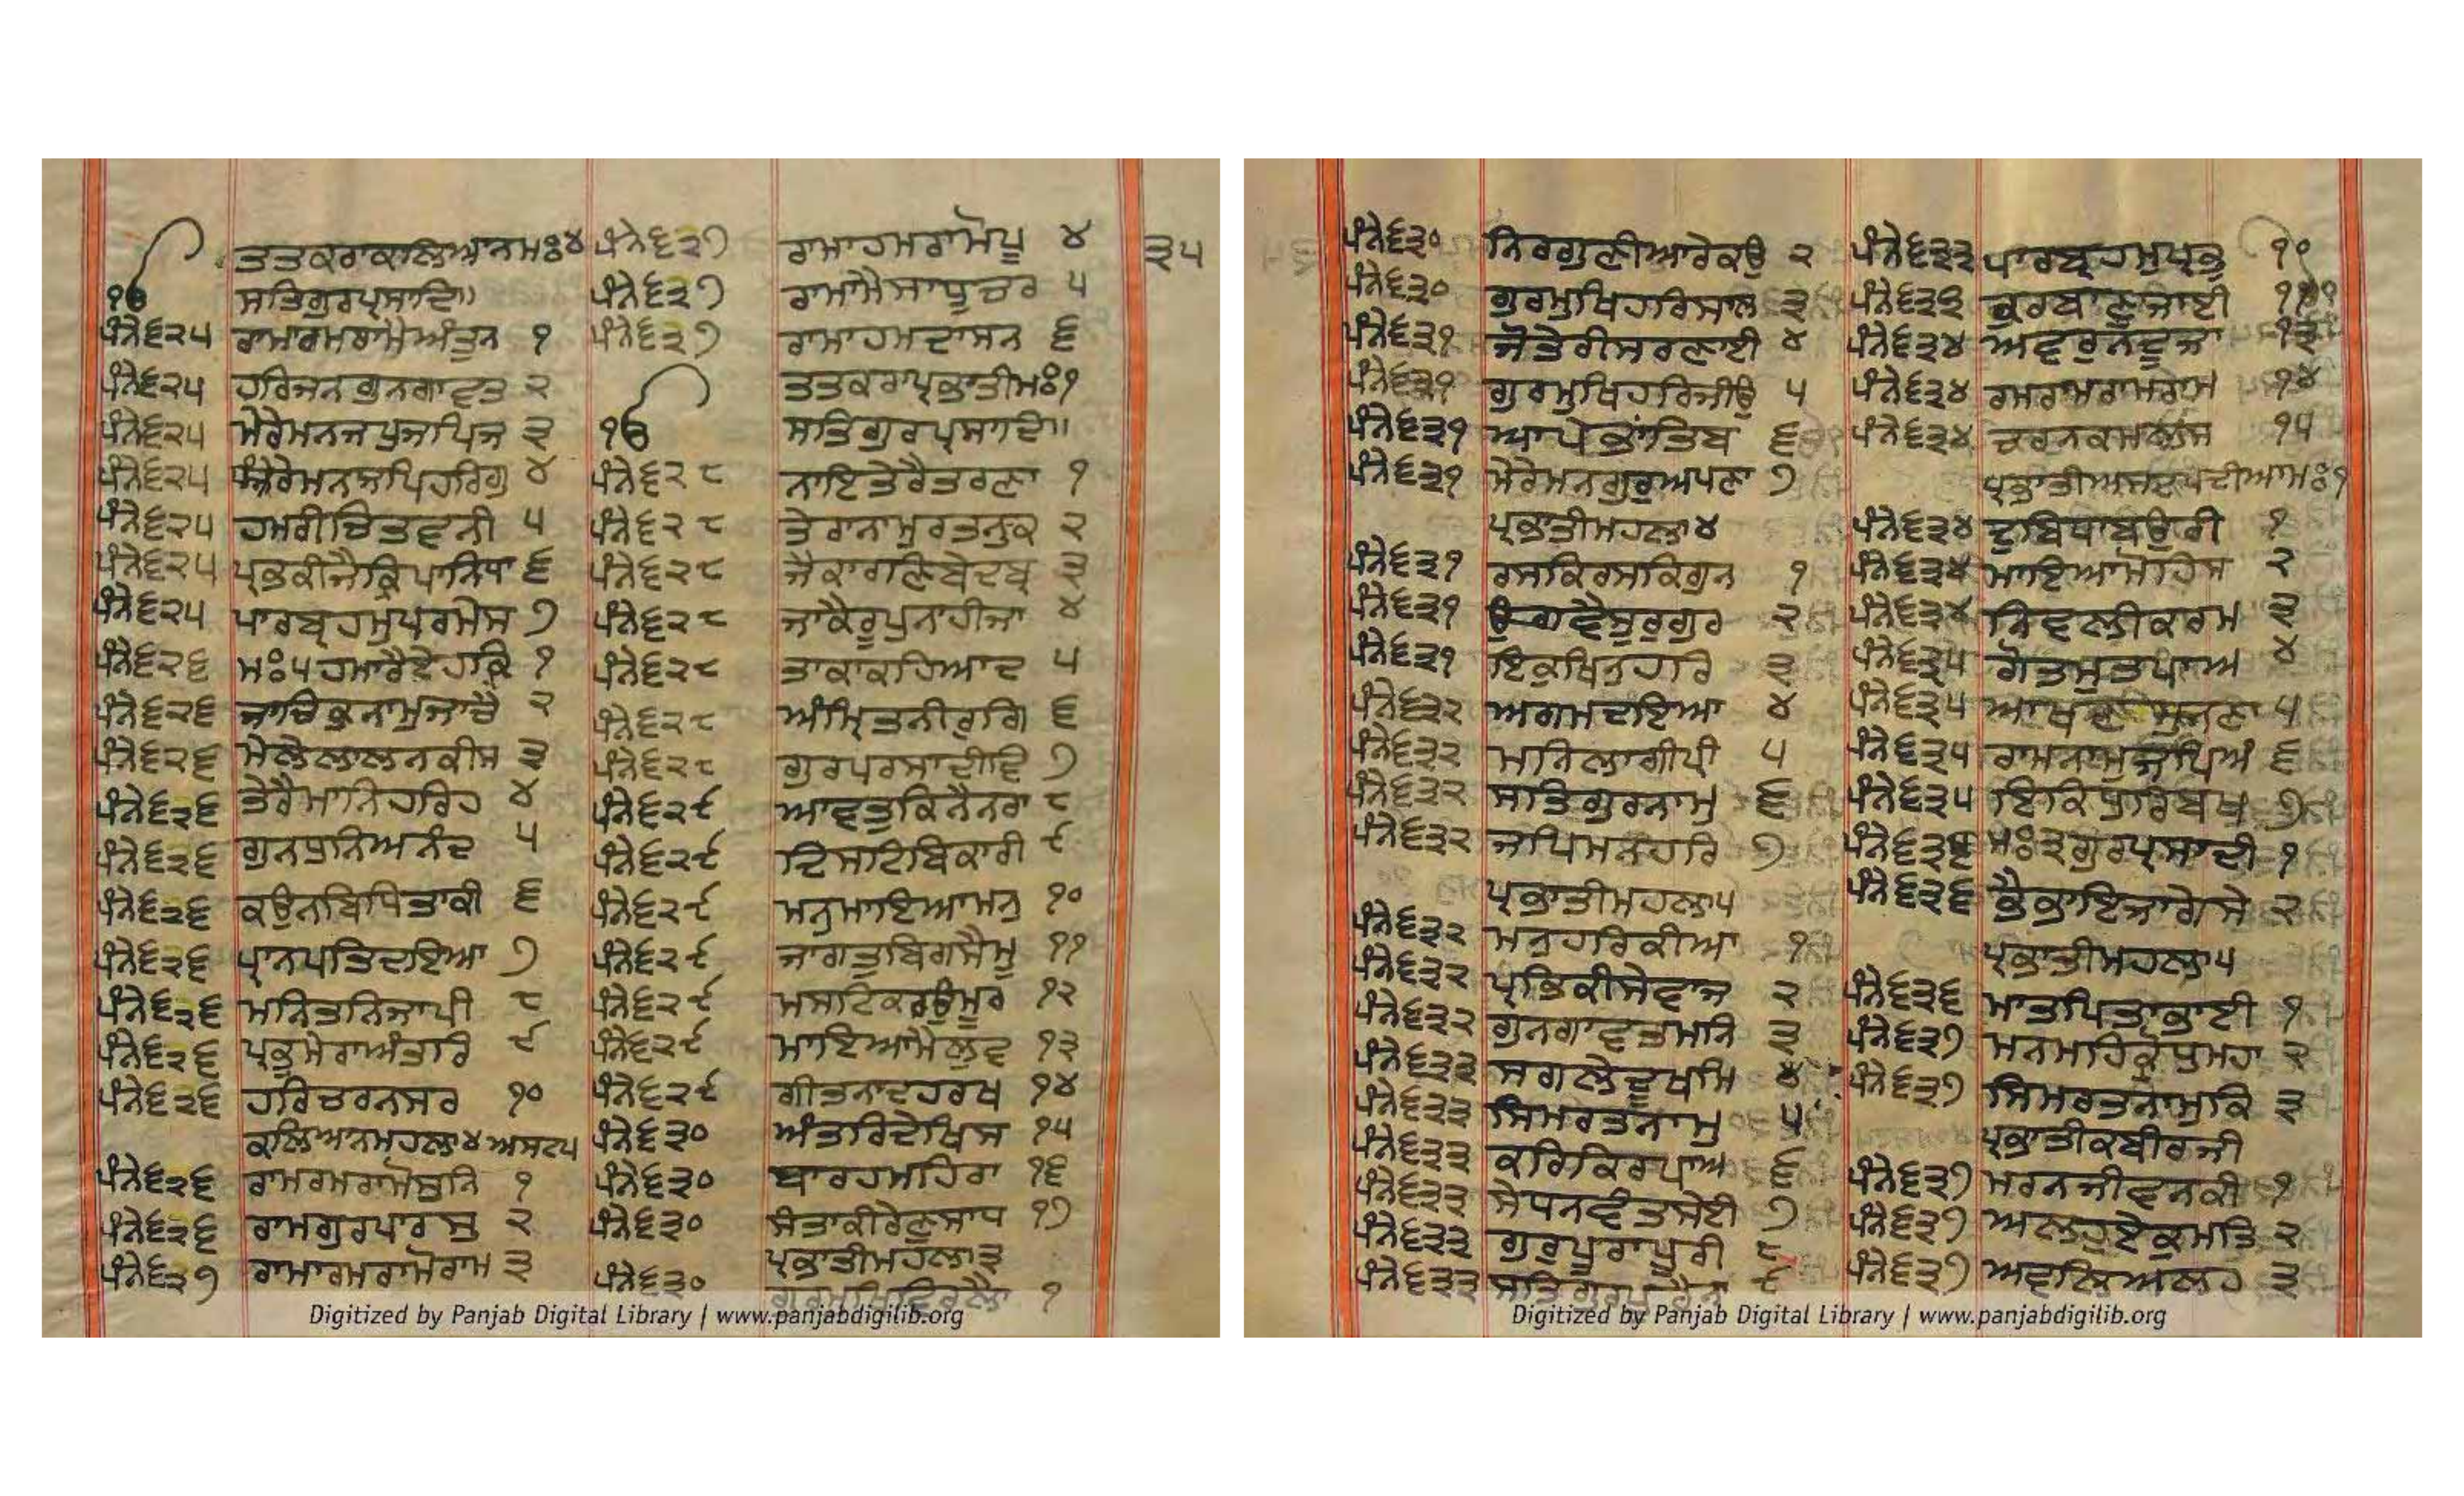 ਤਤਕਰਾਕਲਿਆਨਮਃ੪
ੴ ਸਤਿਗੁਰਪ੍ਰਸਾਦਿ॥
ਪੰਨੇ੬੨੫ ਰਾਮਾਰਮਰਾਮੈਅੰਤੁਨ ੧
ਪੰਨੇ੬੨੫ ਹਰਿਜਨਗੁਨਗਾਵਤ ੨
ਪੰਨੇ੬੨੫ ਮੇਰੇਮਨਜਪੁਜਪਿਜ ੩
ਪੰਨੇ੬੨੫ ਮੇਰੇਮਨਜਪਿਹਰਿਗੁ ੪
ਪੰਨੇ੬੨੫ ਹਮਰੀਚਿਤਵਨੀ ੫
ਪੰਨੇ੬੨੫ ਪ੍ਰਭਕੀਜੈਕ੍ਰਿਪਾਨਿਧਾ ੬
ਪੰਨੇ੬੨੫ ਪਾਰਬ੍ਰਹਮੁਪਰਮੇਸ ੭
ਪੰਨੇ੬੨੬ ਮਃ੫ਹਮਾਰੈਏਹਕਿ ੧
ਪੰਨੇ੬੨੬ ਜਾਚਿਕੁਨਾਮੁਜਾਚੈ ੨
ਪੰਨੇ੬੨੬ ਮੇਲੈਲਾਲਨਕੀਸ ੩
ਪੰਨੇ੬੨੬ ਤੇਰੈਮਾਨਿਹਰਿਹ ੪
ਪੰਨੇ੬੨੬ ਗੁਨਧੁਨਿਅਨੰਦ ੫
ਪੰਨੇ੬੨੬ ਕਉਨਬਿਧਿਤਾਕੀ ੬
ਪੰਨੇ੬੨੬ ਪ੍ਰਾਨਪਤਿਦਇਆ ੭
ਪੰਨੇ੬੨੬ ਮਨਿਤਨਿਜਾਪੀ ੮
ਪੰਨੇ੬੨੬ ਪ੍ਰਭੁਮੇਰਾਅੰਤਰਿ ੯
ਪੰਨੇ੬੨੬ ਹਰਿਚਰਨਸਰ ੧੦
ਕਲਿਆਨਮਹਲਾ੪ਅਸਟਪ
ਪੰਨੇ੬੨੬ ਰਾਮਰਮਰਾਮੋਸੁਨਿ ੧
ਪੰਨੇ੬੨੬ ਰਾਮਗੁਰਪਾਰਸੁ ੨
ਪੰਨੇ੬੨੭ ਰਾਮਾਰਮਰਾਮੋਰਾਮ ੩
ਪੰਨੇ੬੨੭ ਰਾਮਾਹਮਰਾਮੋਪ੍ਰ ੪
ਪੰਨੇ੬੨੭ ਰਾਮਾਮੈਸਾਧੂਚਰ ੫
ਪੰਨੇ੬੨੭ ਰਾਮਾਹਮਦਾਸਨ ੬
ਤਤਕਰਾਪ੍ਰਭਾਤੀਮਃ੧
ੴ ਸਤਿਗੁਰਪ੍ਰਸਾਦਿ॥
ਪੰਨੇ੬੨੮ ਨਾਇਤੇਰੈਤਰਣਾ ੧
ਪੰਨੇ੬੨੮ ਤੇਰਾਨਾਮੁਰਤਨੁਕ ੨
ਪੰਨੇ੬੨੮ ਜੈਕਾਰਣਿਬੇਦਬ੍ਰ ੩
ਪੰਨੇ੬੨੮ ਜਾਕੈਰੂਪੁਨਾਹੀਜਾ ੪
ਪੰਨੇ੬੨੮ ਤਾਕਾਕਹਿਆਦ ੫
ਪੰਨੇ੬੨੮ ਅੰਮ੍ਰਿਤਨੀਰੁਗਿ ੬
ਪੰਨੇ੬੨੮ ਗੁਰਪਰਸਾਦੀਵਿ ੭
ਪੰਨੇ੬੨੯ ਆਵਤੁਕਿਨੈਨਰਾ ੮
ਪੰਨੇ੬੨੯ ਦਿਸਟਿਬਿਕਾਰੀ ੯
ਪੰਨੇ੬੨੯ ਮਨੁਮਾਇਆਮਨੁ ੧੦
ਪੰਨੇ੬੨੯ ਜਾਗਤੁਬਿਗਸੈਮੂ ੧੧
ਪੰਨੇ੬੨੯ ਮਸਟਿਕਰਉਮੂਰ ੧੨
ਪੰਨੇ੬੨੯ ਮਾਇਆਮੈਲੁਵ ੧੩
ਪੰਨੇ੬੨੯ ਗੀਤਨਾਦਹਰਖ ੧੪
ਪੰਨੇ੬੩੦ ਅੰਤਰਿਦੇਖਿਸ ੧੫
ਪੰਨੇ੬੩੦ ਬਾਰਹਮਹਿਰਾ ੧੬
ਪੰਨੇ੬੩੦ ਸੰਤਾਕੀਰੇਣੁਸਾਧ ੧੭
ਪ੍ਰਭਾਤੀਮਹਲਾ੩
ਪੰਨੇ੬੩੦ ਗੁਰਮੁਖਿਵਿਰਲਾ ੧
੩੫
Digitized by Panjab Digital Library | www.panjabdigilib.org
ਪੰਨੇ੬੩੦ ਨਿਰਗੁਣੀਆਰੇਕਉ ੨
ਪੰਨੇ੬੩੦ ਗੁਰਮੁਖਿਹਰਿਸਾਲ ੩
ਪੰਨੇ੬੩੧ ਜੋਤੇਰੀਸਰਣਾਈ ੪
ਪੰਨੇ੬੩੧ ਗੁਰਮੁਖਿਹਰਿਜੀਉ ੫
ਪੰਨੇ੬੩੧ ਆਪੇਭਾਂਤਿਬ ੬
ਪੰਨੇ੬੩੧ ਮੇਰੇਮਨਗੁਰੁਅਪਣਾ ੭
ਪ੍ਰਭਾਤੀਮਹਲਾ੪
ਪੰਨੇ੬੩੧ ਰਸਕਿਰਸਕਿਗੁਨ ੧
ਪੰਨੇ੬੩੧ ਉਗਵੈਸੂਰੁਗੁਰ ੨
ਪੰਨੇ੬੩੧ ਇਕੁਖਿਨੁਹਰਿ ੩
ਪੰਨੇ੬੩੨ ਅਗਮਦਇਆ ੪
ਪੰਨੇ੬੩੨ ਮਨਿਲਾਗੀਪ੍ਰੀ ੫
ਪੰਨੇ੬੩੨ ਸਤਿਗੁਰਨਾਮੁ ੬
ਪੰਨੇ੬੩੨ ਜਪਿਮਨਹਰਿ ੭
ਪ੍ਰਭਾਤੀਮਹਲਾ੫
ਪੰਨੇ੬੩੨ ਮਨੁਹਰਿਕੀਆ ੧
ਪੰਨੇ੬੩੨ ਪ੍ਰਭਕੀਸੇਵਾਜ ੨
ਪੰਨੇ੬੩੨ ਗੁਨਗਾਵਤਮਨਿ ੩
ਪੰਨੇ੬੩੩ ਸਗਲੇਦੂਖਮਿ ੪
ਪੰਨੇ੬੩੩ ਸਿਮਰਤਨਾਮੁ ੫
ਪੰਨੇ੬੩੩ ਕਰਿਕਿਰਪਾਅ ੬
ਪੰਨੇ੬੩੩ ਸੇਧਨਵੰਤਸੇਈ ੭
ਪੰਨੇ੬੩੩ ਗੁਰੁਪੂਰਾਪੂਰੀ ੮
ਪੰਨੇ੬੩੩ ਸਤਿਗੁਰਪੂਰੈਨਾ ੯
ਪੰਨੇ੬੩੩ ਪਾਰਬ੍ਰਹਮੁਪ੍ਰਭੁ ੧੦
ਪੰਨੇ੬੩੩ ਕੁਰਬਾਣੁਜਾਈ
ਪੰਨੇ੬੩੪ ਅਵਰੁਨਦੂਜਾ ੧੩
ਪੰਨੇ੬੩੪ ਰਮਰਾਮਰਾਮਰਾਮ ੧੪
ਪੰਨੇ੬੩੪ ਚਰਨਕਮਲਸ ੧੫
ਪ੍ਰਭਾਤੀਅਸਟਪਦੀਆਮਃ੧
ਪੰਨੇ੬੩੪ ਦੁਬਿਧਾਬਉਰੀ ੧
ਪੰਨੇ੬੩੪ ਮਾਇਆਮੋਹਿਸ ੨
ਪੰਨੇ੬੩੪ ਨਿਵਲੀਕਰਮ ੩
ਪੰਨੇ੬੩੫ ਗੋਤਮੁਤਪਾਅ ੪
ਪੰਨੇ੬੩੫ ਆਖਣਾਸੁਨਣਾ ੫
ਪੰਨੇ੬੩੫ ਰਾਮਨਾਮਜਪਿਅੰ ੬
ਪੰਨੇ੬੩੫ ਇਕਿਧੁਰਿਬਖ ੭
ਮਃ੩ਗੁਰਪ੍ਰਸਾਦੀ ੧
ਪੰਨੇ੬੩੬ ਭੈਭਾਇਜਾਗੇਸੇ ੨
ਪ੍ਰਭਾਤੀਮਹਲਾ੫
ਪੰਨੇ੬੩੬ ਮਾਤਪਿਤਾਭਾਈ ੧
ਪੰਨੇ੬੩੭ ਮਨਮਹਿਕ੍ਰੋਧੁਮਹਾ ੨
ਪੰਨੇ੬੩੭ ਸਿਮਰਤਨਾਮੁਕਿ ੩
ਪ੍ਰਭਾਤੀਕਬੀਰਜੀ
ਪੰਨੇ੬੩੭ ਮਰਨਜੀਵਨਕੀ ੧
ਪੰਨੇ੬੩੭ ਅਲਹੁਏਕੁਮਤਿ ੨
ਪੰਨੇ੬੩੭ ਅਵਲਿਅਲਹ ੩
Digitized by Panjab Digital Library | www.panjabdigilib.org